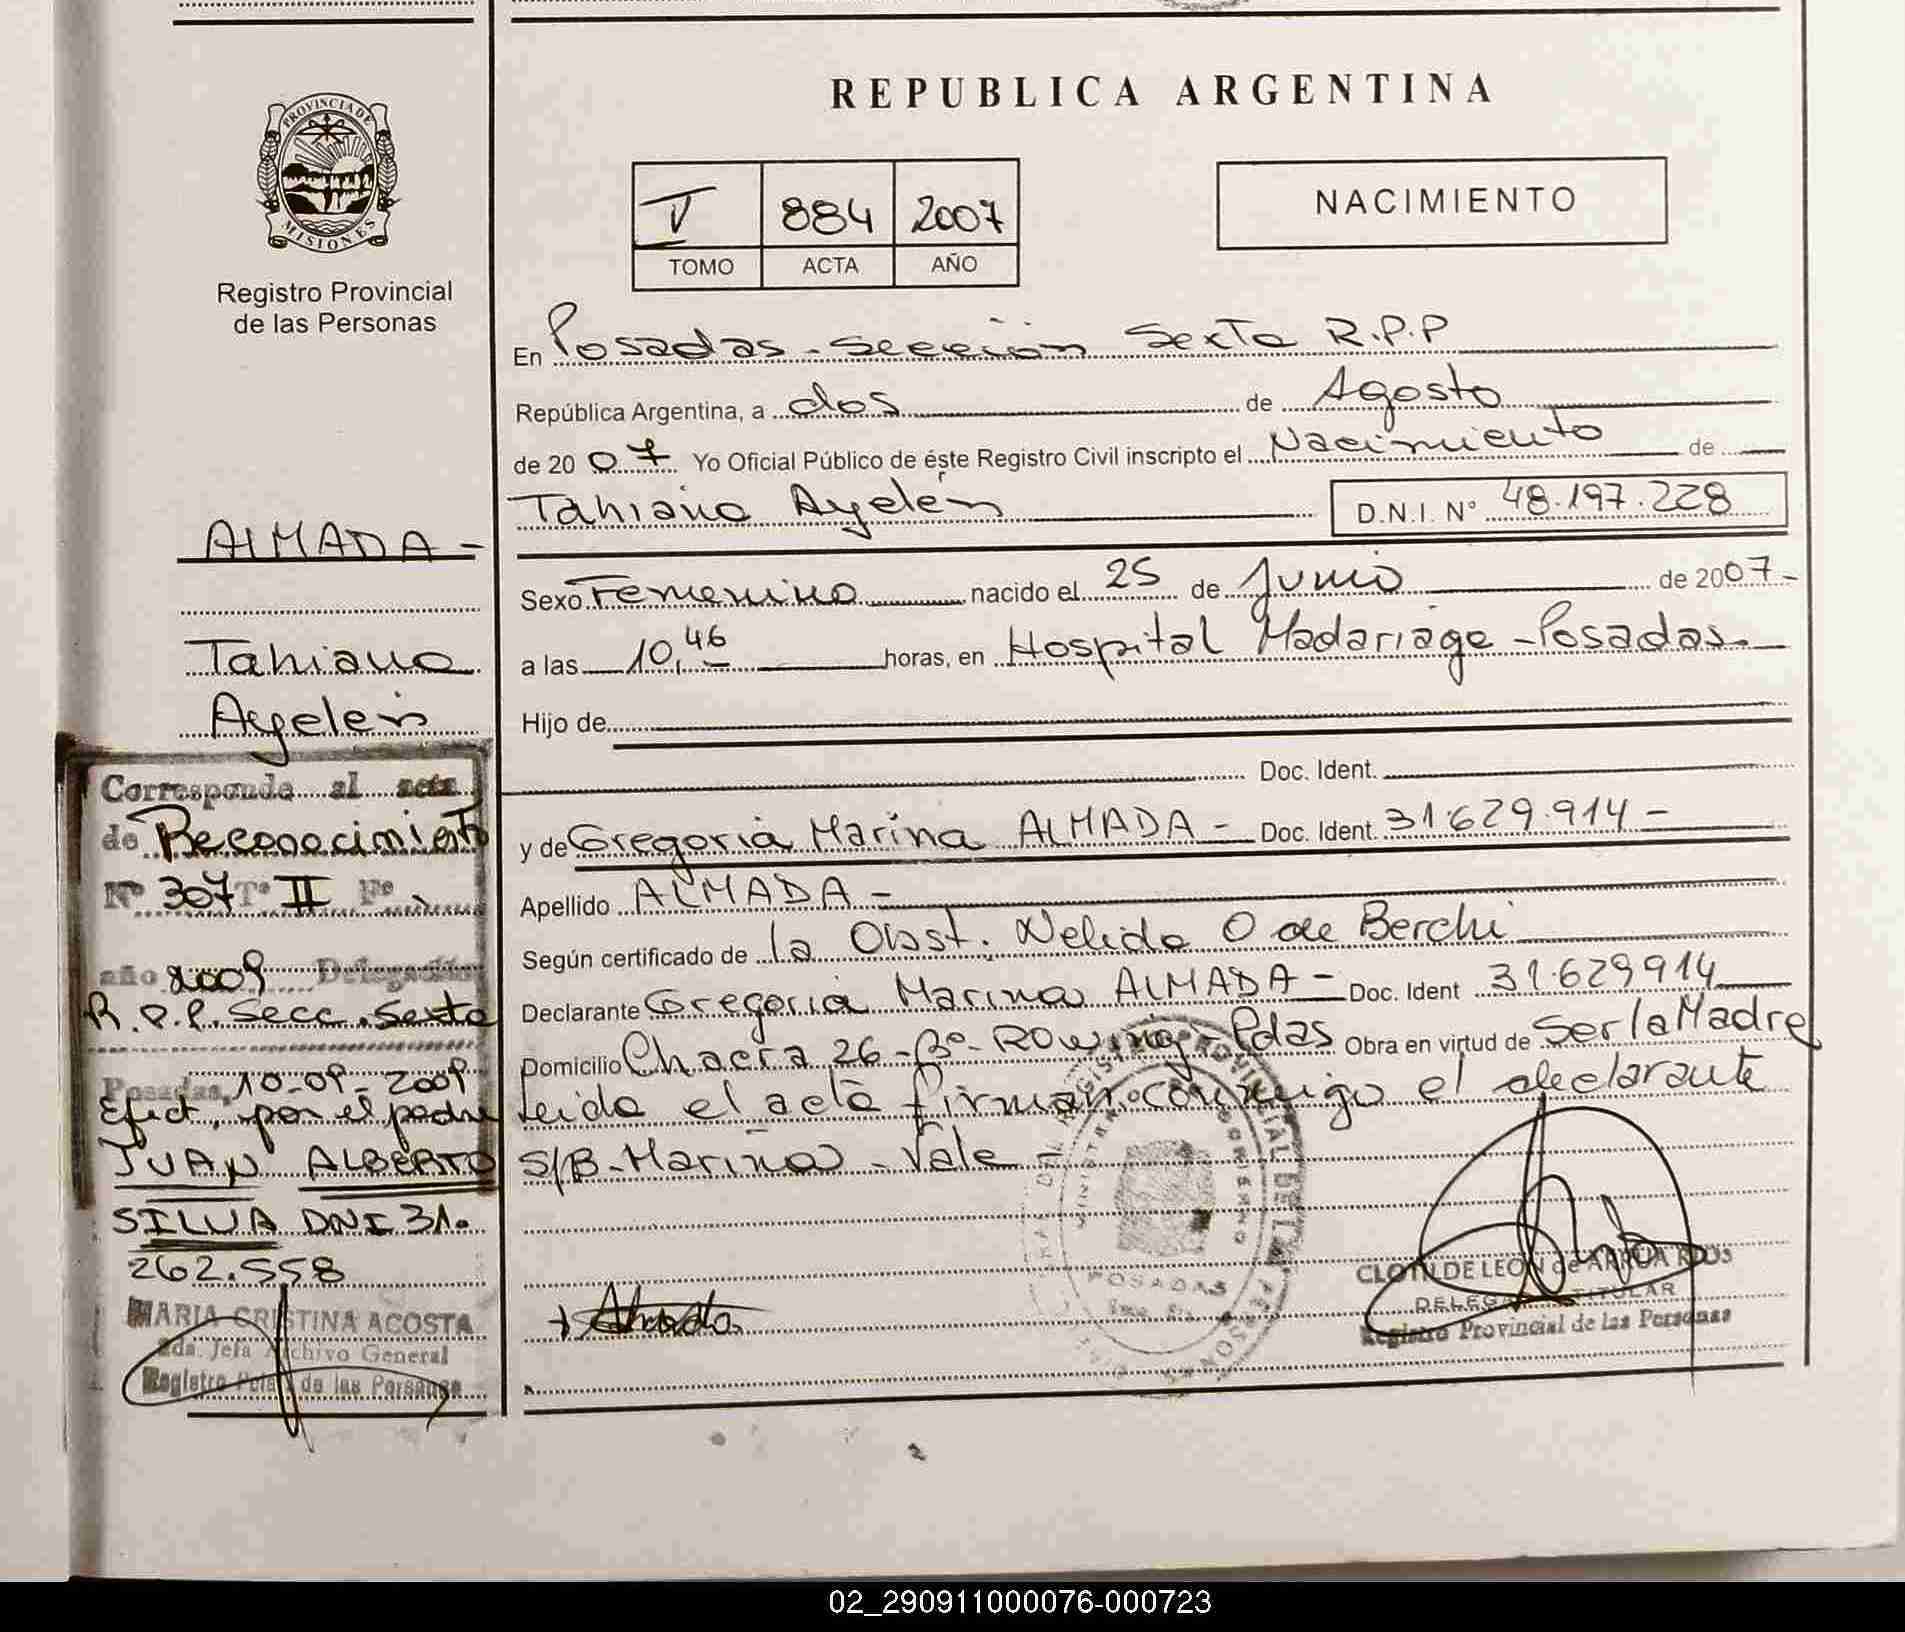 PROVINCIA DE
MISIONES
Registro Provincial
de las Personas
ALMADA -
Tahiana
Ayelén
Corresponde al acta
de Reconocimiento
Nº 307 Tº II Fº
año 2009 Delegación
R.P.P. Secc. Sexta
Posadas, 10-09-2009
Efect, por el padre
JUAN ALBERTO
SILVA DNI 31.
262.558
MARIA CRISTINA ACOSTA
2da. Jefa Archivo General
Registro Pcial de las Personas
REPUBLICA ARGENTINA
V 884 2007
TOMO ACTA AÑO
NACIMIENTO
En Posadas - Sección Sexta R.P.P
República Argentina, a dos de Agosto
de 2007 Yo Oficial Público de éste Registro Civil inscripto el Nacimiento de
Tahiana Ayelén D.N.I. Nº 48.197.228
Sexo Femenino nacido el 25 de Junio de 2007-
a las 10,46 horas, en Hospital Madariaga - Posadas-
Hijo de
Doc. Ident.
y de Gregoria Marina ALMADA - Doc. Ident. 31.629.914 -
Apellido ALMADA -
Según certificado de la Obst. Nelida O de Berchi
Declarante Gregoria Marina ALMADA - Doc. Ident 31.629914
Domicilio Chacra 26 - Bº - ROwing - Pdas Obra en virtud de Ser la Madre
Leida el acta firman conmigo el declarante
S/B - Marina - Vale
POSADAS
CLOTILDE LEON de ARRUA RIOS
DELEGADA TITULAR
Registro Provincial de las Personas
02_290911000076-000723